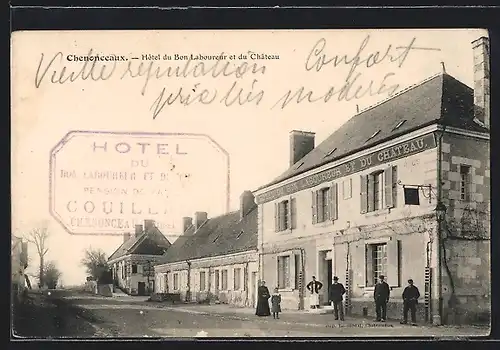 Chenonceaux. — Hôtel du Bon Laboureur et du Château
Vieille réputation Confort
prix très modérés
HOTEL
DU
BON LABOUREUR ET DU
PENSION DE
COUILL
CHENONCEA
BON LABOUREUR ET DU CHATEAU.